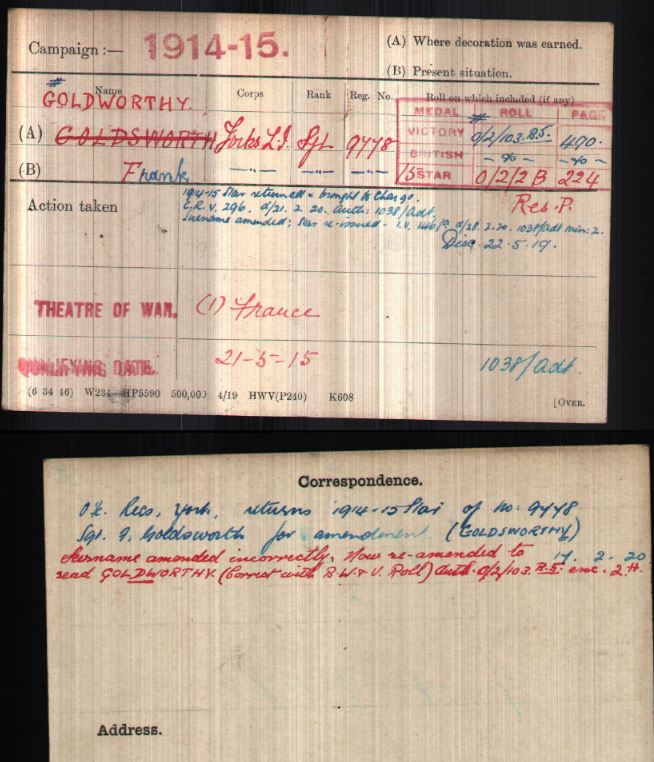 Campaign :— 1914-15.
(A) Where decoration was earned.
(B) Present situation.
#
Name Corps Rank Reg. No. Roll on which included (if any)
GOLDWORTHY.
MEDAL ROLL PAGE
(A) GOLDSWORTH Yorks L.I. Sjt 9778
VICTORY # O/2/103.B.5. 490.
BRITISH — do — — do —
(B) Frank —"— —"— —"—
15 STAR O/2/2 B 224
Action taken
1914-15 Star returned & brought to Charge.
C.R.V. 296. d/21. 2. 20. Auth: 1038/Adt.
Surname amended; Star re-issued - I.V. d/28. 2. 20. 1038/Adt min: 2.
Res. P.
Disc. 22.5.19.
THEATRE OF WAR. (1) France
QUALIFYING DATE. 21-5-15
1038/Adt.
(6 34 46) W234—HP5590 500,000 4/19 HWV(P240) K608
[OVER.
Correspondence.
O i/c Recs, York, returns 1914-15 Star of No: 9778
Sgt. F. Goldsworth for amendment (GOLDSWORTHY)
17. 2. 20
Surname amended incorrectly. Now re-amended to
read GOLDWORTHY. (Correct with B.W. & V. Roll) Auth. O/2/103. B.5. enc. 2 #.
Address.